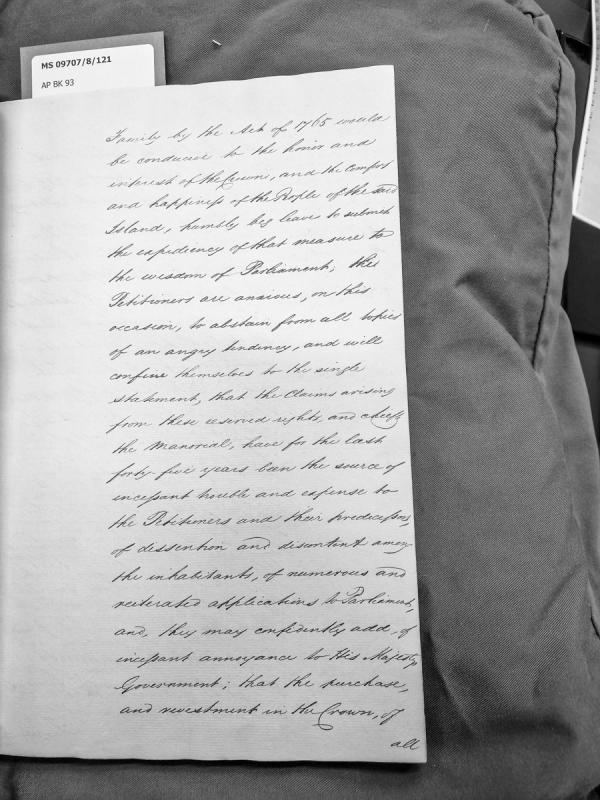 MS 09707/8/121
AP BK 93
Family by the Act of 1765 would
be conducive to the honor and
interest of the Crown, and the comfort
and happiness of the People of the said
Island, humbly beg leave to submit
the expediency of that measure to
the wisdom of Parliament; the
Petitioners are anxious, on this
occasion, to abstain from all topics
of an angry tendency, and will
confine themselves to the single
statement, that the Claims arising
from these reserved rights, and chiefly
the Manorial, have for the last
forty-five years been the source of
incessant trouble and expense to
the Petitioners and their predecessors,
of dissention and discontent among
the inhabitants, of numerous and
reiterated applications to Parliament,
and, they may confidently add, of
incessant annoyance to His Majesty's
Government; that the purchase,
and revestment in the Crown, of
all